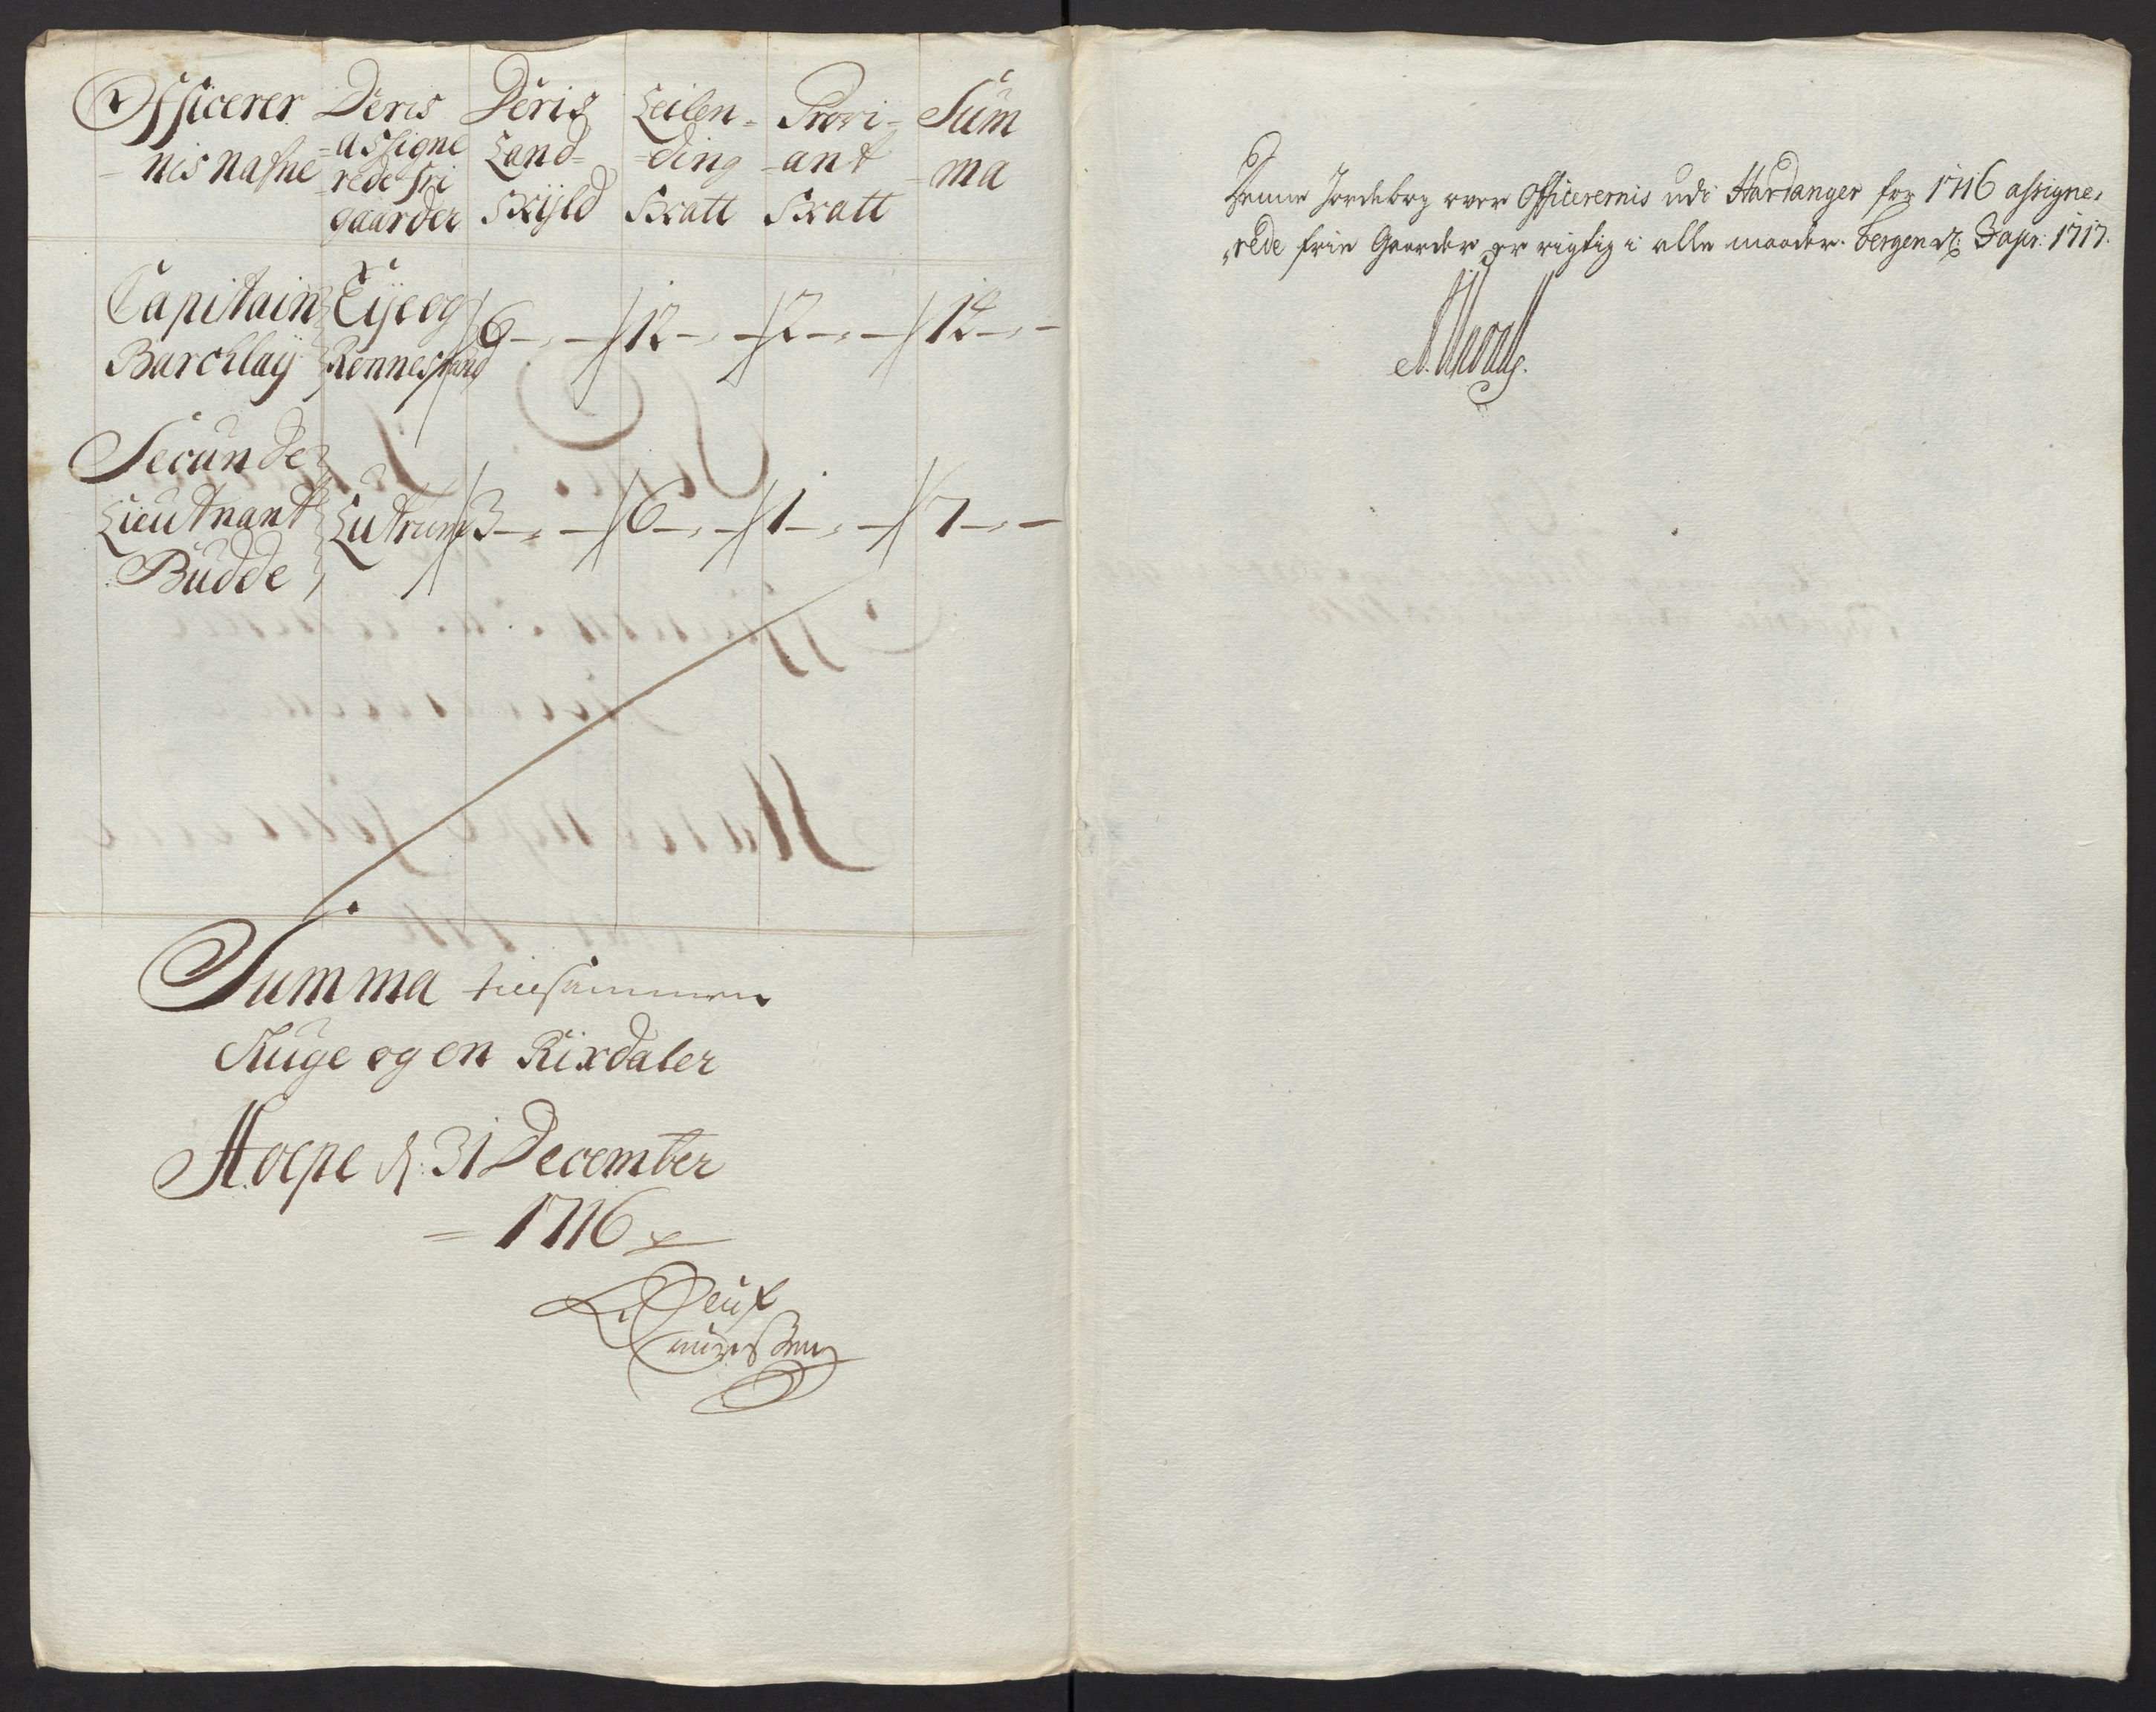 Officerer
= nis nafne
Deris
=assigne
=rede fri
gaarder
Deris
Land=
Skyld
Leilen=
=ding
Skatt
Provi=
=ant
Skatt
Sum
=ma
Capitain
Barchlaÿ
Eÿe og
Rennestrand
6 — „ —
12 — „ —
2 — „ —
14 — „ —
Secunde
Lieutnant
Budde
Lutrum
3 — „ —
6 — „ —
1 — „ —
7 — „ —
Summa tilsammen
Tiuge og en Rixdaler
Hoepe d: 31 December
= 1716
Denne Jordebog over Officerernis udi Hardanger for 1716 assigne„
„rede frie Gaarder er rigtig i alle maader. Bergen d: apr: 1717.